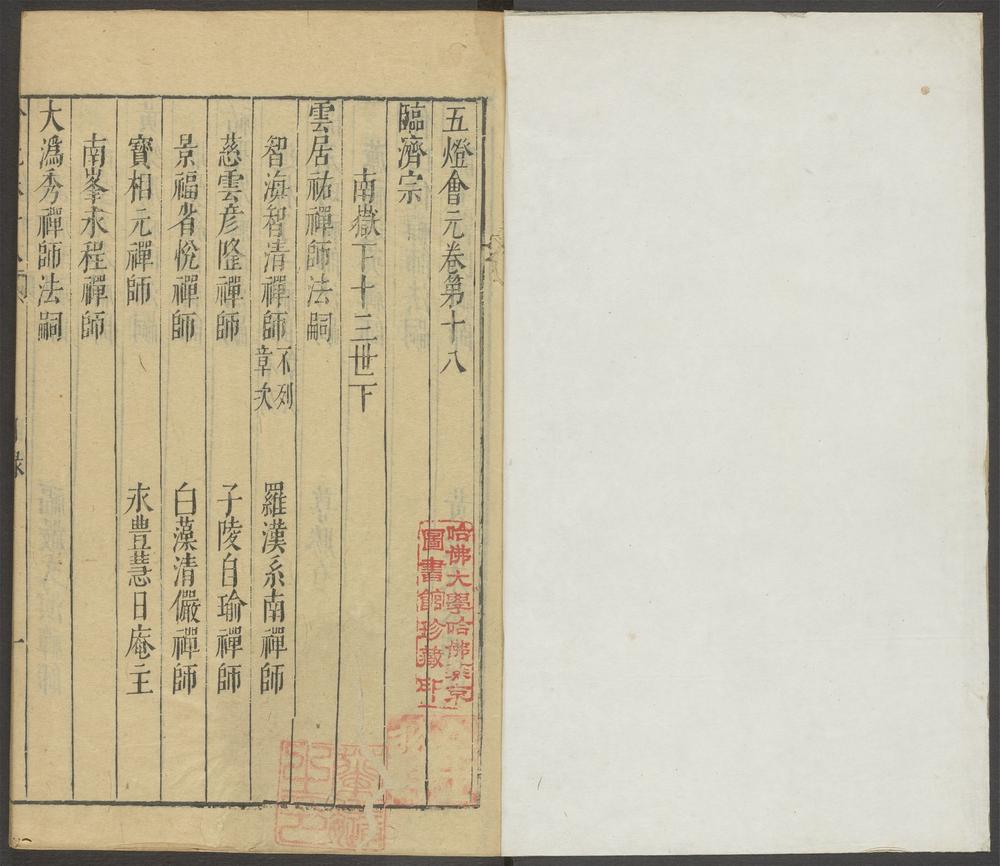 五燈會元卷第十八
臨濟宗
南嶽下十三世下
雲居祐禪師法嗣
智海智清禪師 不列章次 羅漢系南禪師
慈雲彥隆禪師 子陵自瑜禪師
景福省悅禪師 白藻清儼禪師
寶相元禪師 永豊慧日庵主
南峯永程禪師
大溈秀禪師法嗣
哈佛大學哈佛燕京
圖書館珍藏印